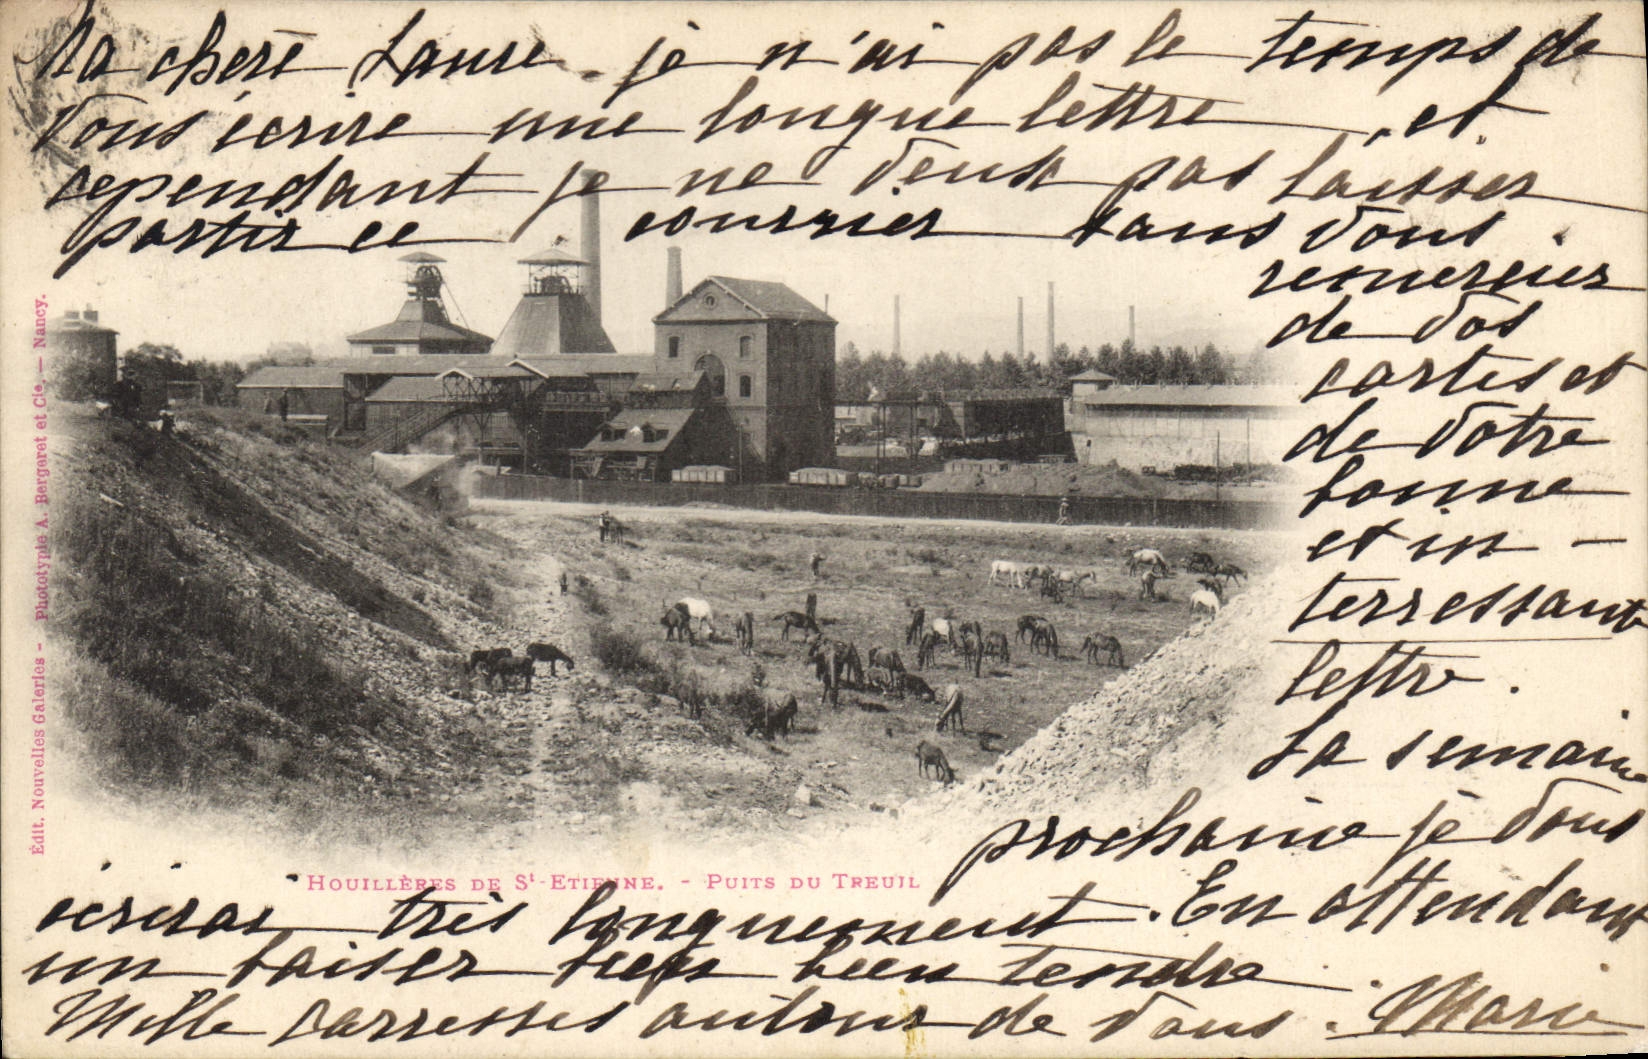 Ma chère Laure. je n'ai pas le temps de
vous écrire une longue lettre, et
cependant je ne veux pas laisser
partir ce courrier sans vous
remercier
de vos
cartes et
de votre
bonne
et in-
terressante
lettre.
La semaine
prochaine je vous
écrirai très longuement. En attendant
un baiser bien bien tendre.
Mille carresses autour de vous. Marie
HOUILLÈRES DE St-ETIENNE. - PUITS DU TREUIL
Édit. Nouvelles Galeries - Phototypie A. Bergeret et Cie. — Nancy.